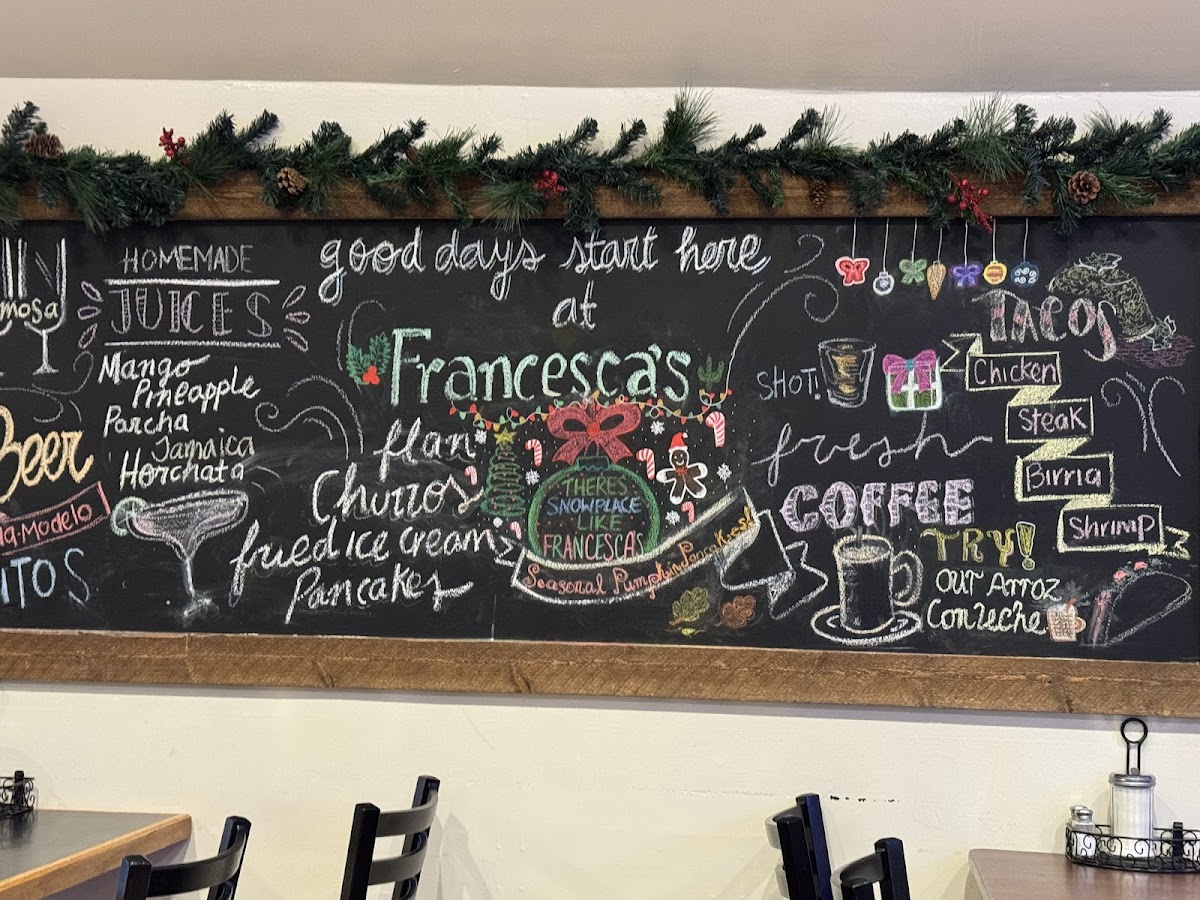 mosa
Beer
a-Modelo
ITOS
HOMEMADE
JUICES
Mango
Pineapple
Parcha
Jamaica
Horchata
good days start here
at
Francesca's
flan
Churros
fried Ice Cream
Pancakes
THERES
SNOWPLACE
LIKE
FRANCESCA'S
Seasonal Pumpkin Pancakes!
SHOT!
fresh
COFFEE
TRY!
OUr Arroz
Con Leche
Tacos
Chicken
Steak
Birria
Shrimp